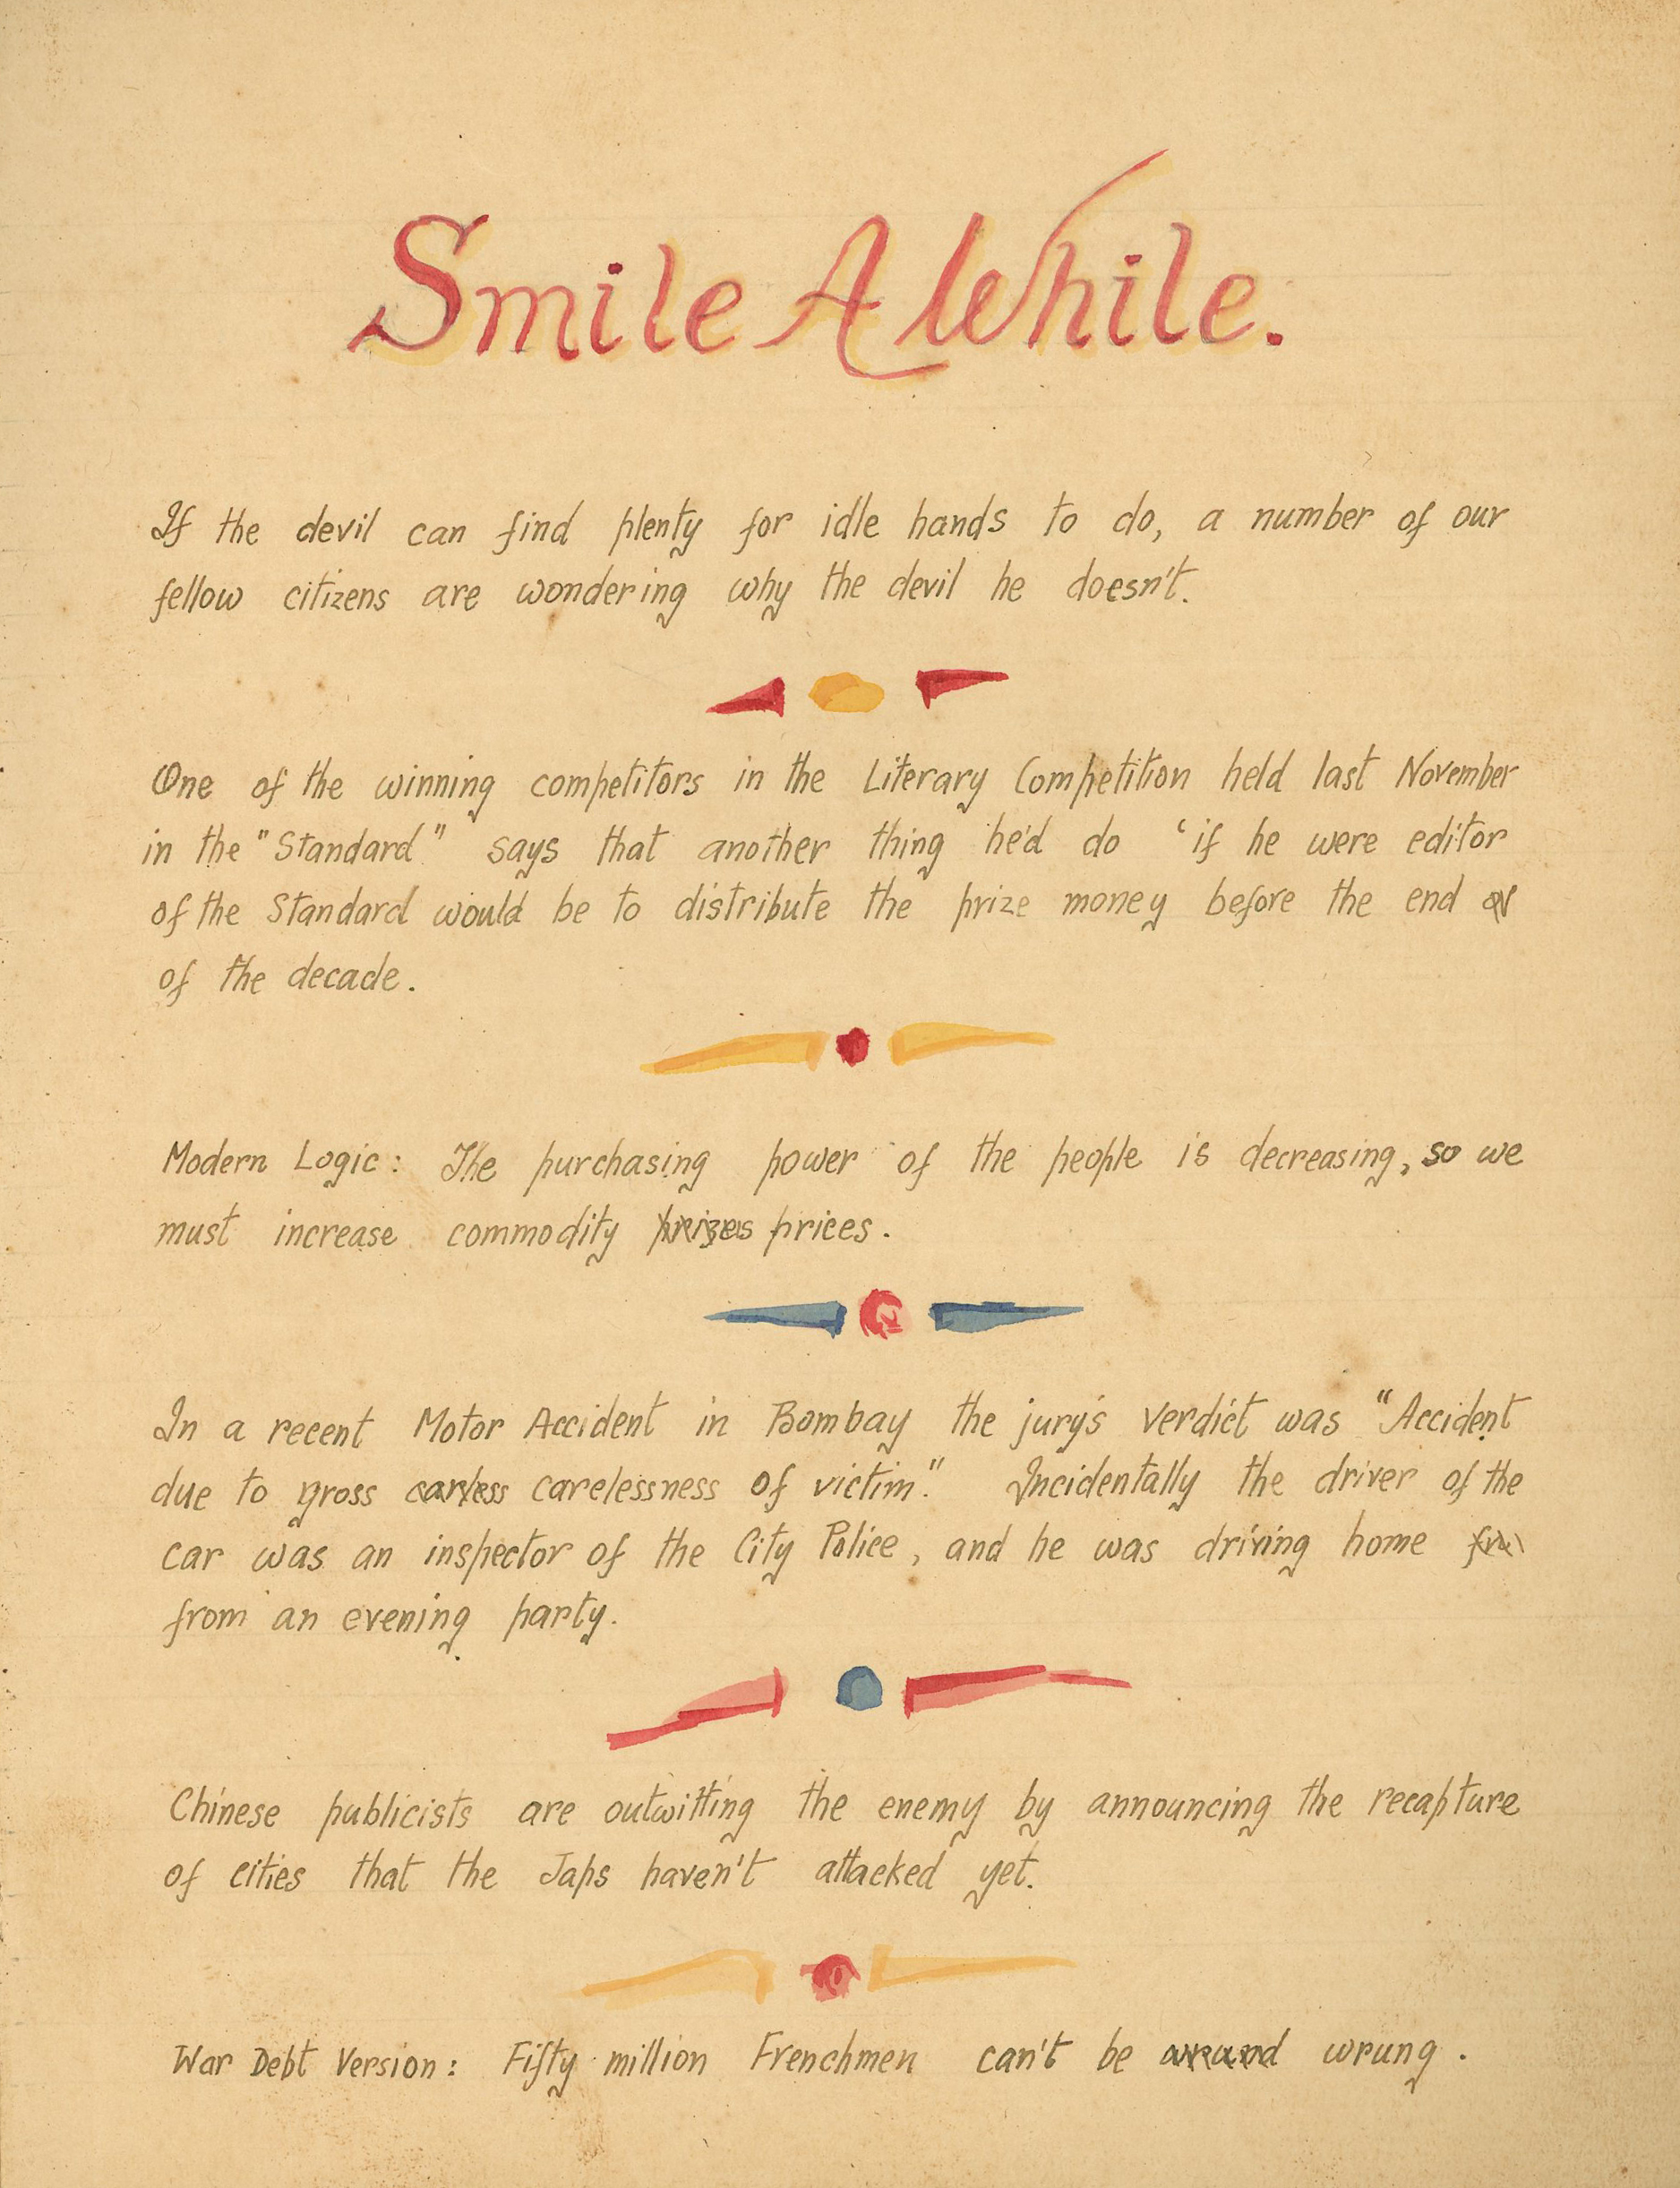 Smile A While.
If the devil can find plenty for idle hands to do, a number of our
fellow citizens are wondering why the devil he doesn't.
One of the winning competitors in the Literary Competition held last November
in the "Standard" says that another thing he'd do 'if he were editor
of the Standard would be to distribute the prize money before the end
of the decade.
Modern Logic: The purchasing power of the people is decreasing, so we
must increase commodity prizes prices.
In a recent Motor Accident in Bombay the jury's verdict was "Accident
due to gross carless carelessness of victim." Incidentally the driver of the
car was an inspector of the City Police, and he was driving home
from an evening party.
Chinese publicists are outwitting the enemy by announcing the recapture
of cities that the Japs haven't attacked yet.
War Debt Version: Fifty million Frenchmen can't be wrung.